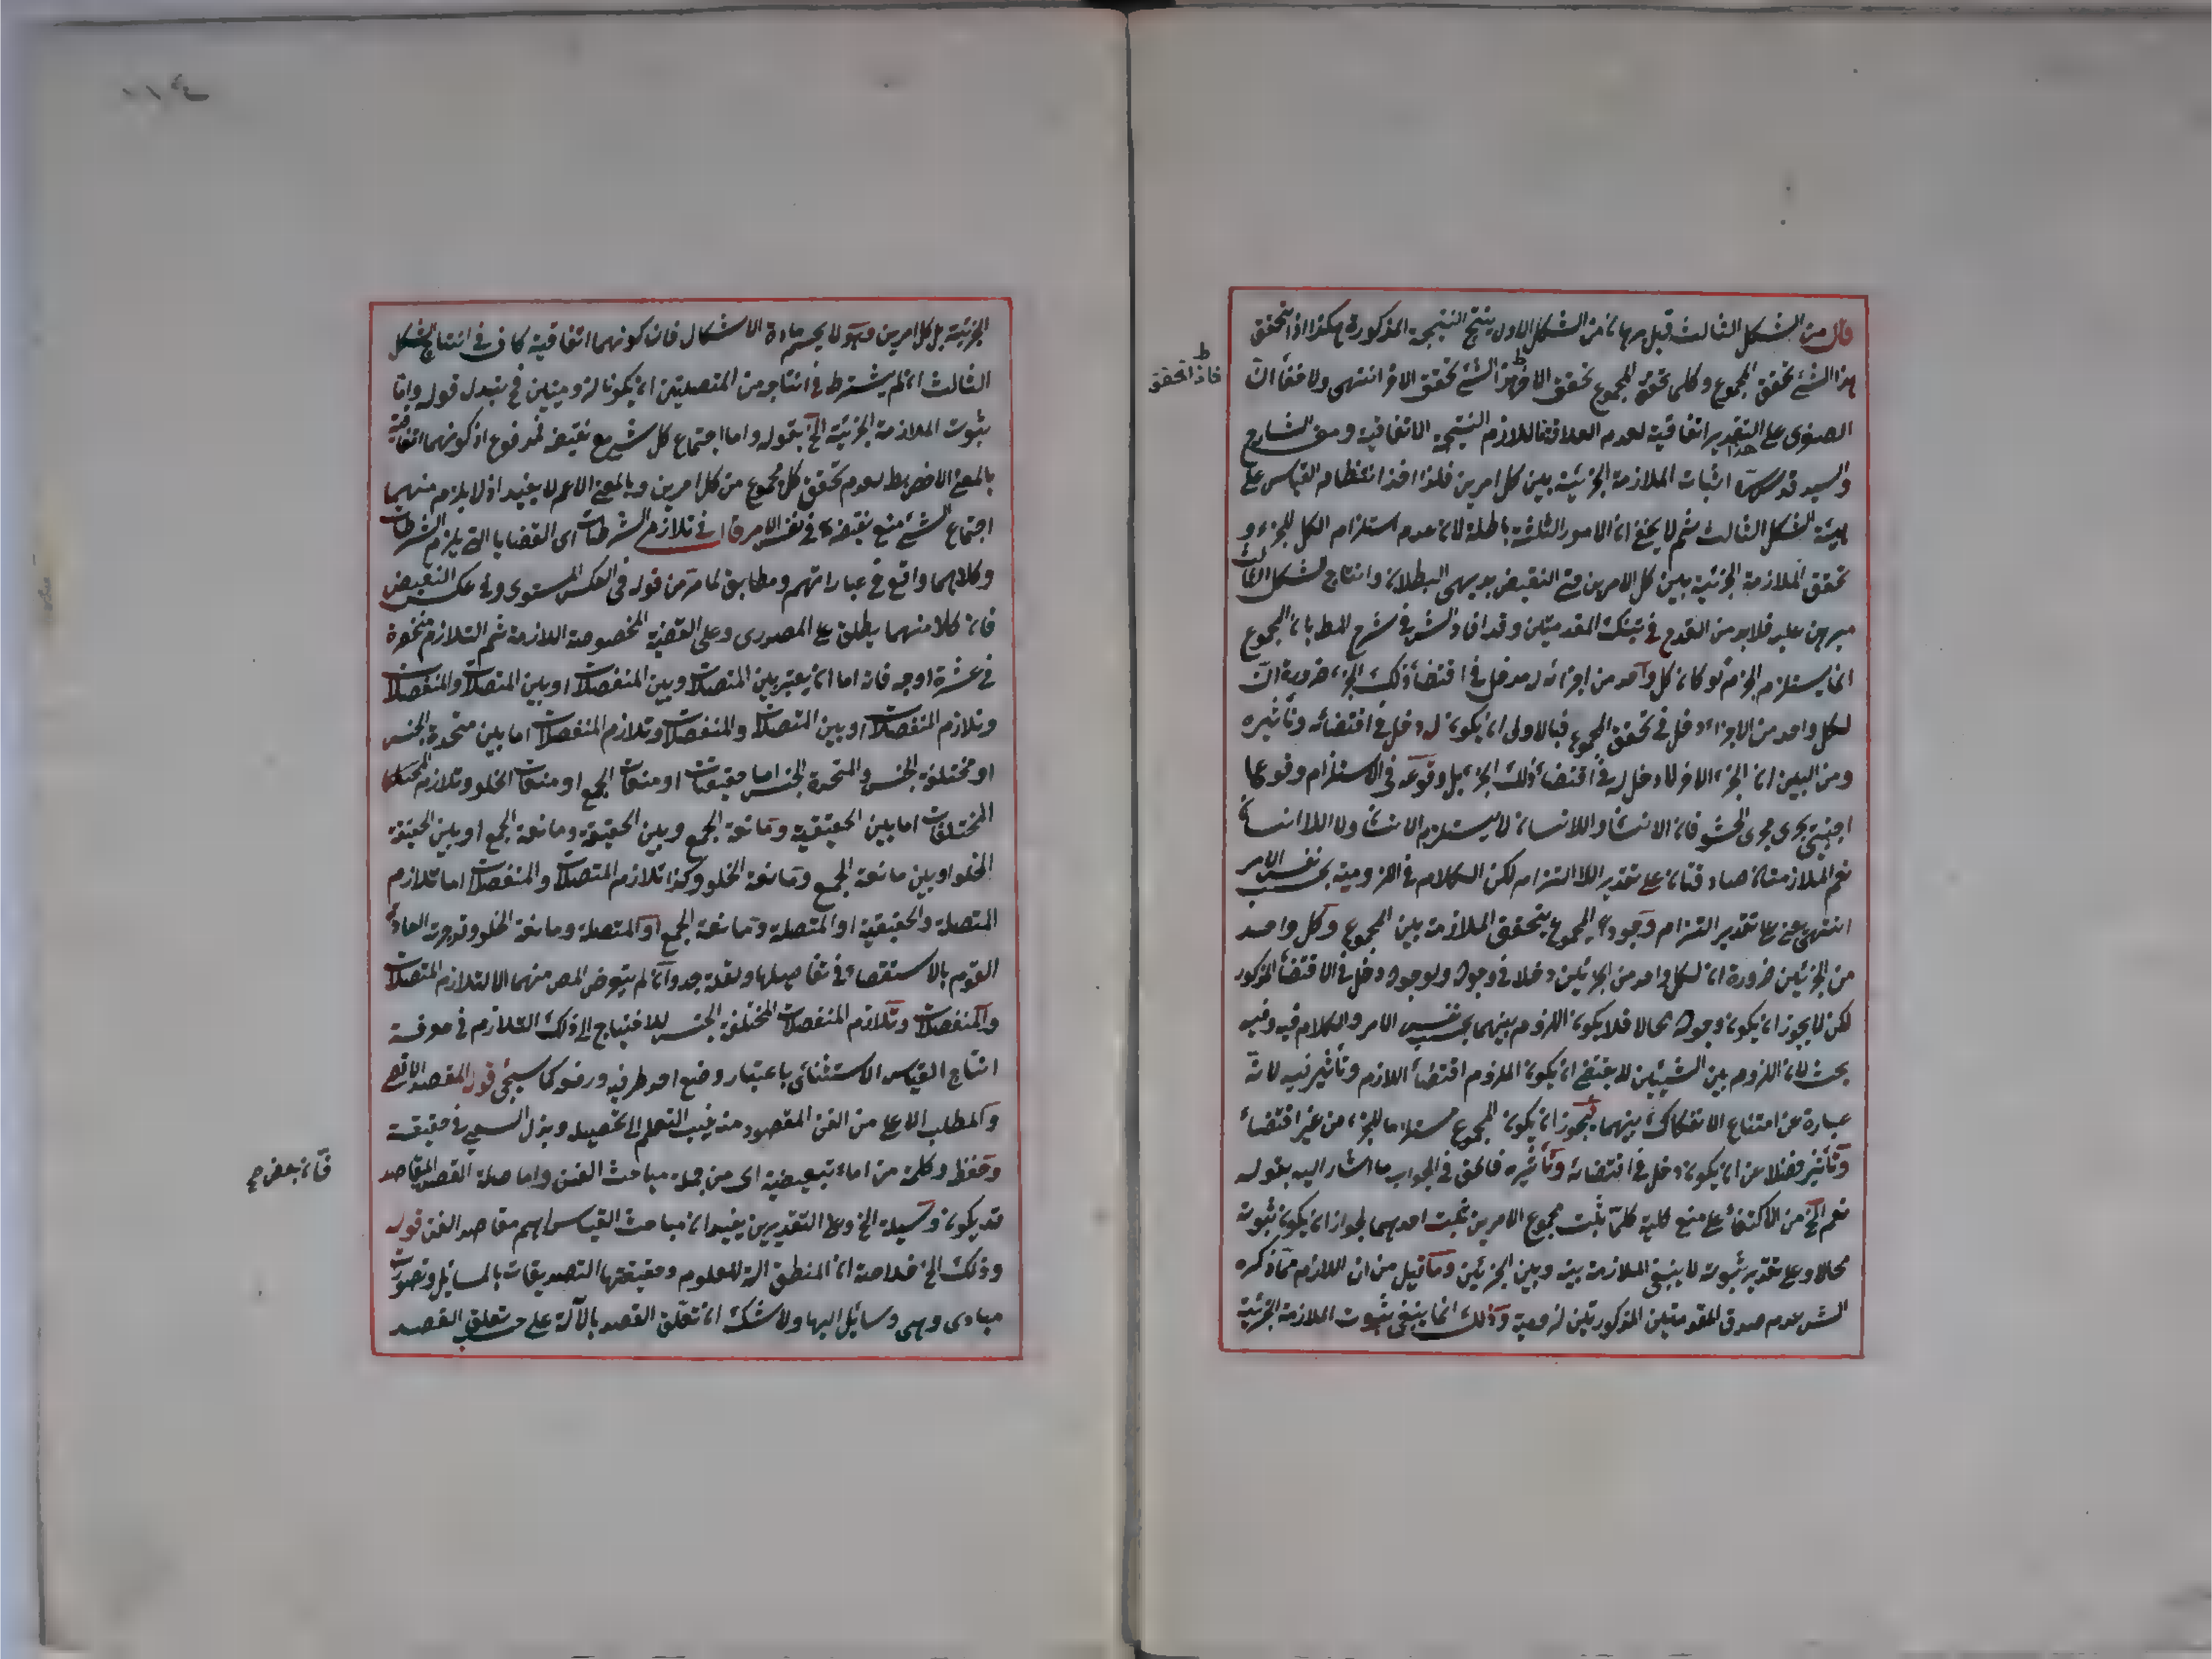 قال من الشكل الثالث قيل برهانه من الشكل الاول ينتج النتيجة المذكورة هكذا اذا تحقق
هذا الشئ تحقق المجموع وكلما تحقق المجموع تحقق الاخر فهذا الشئ تحقق الاخر انتهى ولا خفأ ان
فاذا تحقق
الصغرى على التقدير اتفاقية لعدم العلاقة فاللازم النتيجة الاتفاقية ومنع الشارح
والسيد قدس سره اثبات الملازمة الجزئية بين كل امرين فلذا اخذا انتظام القياس على
هيئة الشكل الثالث ثم لا يخفى ان الامور الثلثة باطلة لان عدم استلزام الكل للجزء و
تحقق الملازمة الجزئية بين كل الامرين حتى النقيض بديهى البطلان وانتاج الشكل الثالث
مبرهن عليه فلا بد من القدح فى تينك المقدمتين وقد افاد الش فى شرح المط بان المجموع
انما يستلزم الجزء لو كان كل واحد من اجزائه له مدخل فى اقتضأ ذلك الجزء ضرورة ان
لكل واحد من الاجزاء دخل فى تحقق المجموع فبالاولى ان يكون له دخل فى اقتضائه وتأثيره
ومن البين ان الجزء الاخر لا دخل له فى اقتضأ ذلك الجزء بل وقوعه فى الاستلزام وقوعا
اجنبى يجرى مجرى الحشو فان الانسان واللاانسان لا يستلزم الانسان ولا اللاانسان
نعم الملازمتان صادقتان على تقدير الالتزام لكن الكلام فى اللزومية بحسب نفس الامر
انتهى يعنى على تقدير التزام وجود المجموع يتحقق الملازمة بين المجموع وكل واحد
من الجزئين ضرورة ان لكل واحد من الجزئين دخلا فى وجوده ولوجوده دخل فى الاقتضأ المذكور
لكن لا يجوز ان يكون وجوده محالا فلا يكون اللزوم بينهما بحسب نفس الامر والكلام فيه وفيه
بحث لان اللزوم بين الشيئين لا يقتضى ان يكون الملزوم اقتضأ اللازم وتأثير فيه لانه
عبارة عن امتناع الانفكاك بينهما فيجوز ان يكون المجموع مستلزما للجزء من غير اقتضأ
وتأثير فضلا عن ان يكون دخل فى اقتضائه وتأثيره فالحق فى الجواب ما اشار اليه بقوله
نعم الخ من الاكتفأ على منع كلية كلما ثبت مجموع الامرين ثبت احدهما لجواز ان يكون ثبوته
محالا وعلى تقدير ثبوته لا ينبغى الملازمة بينه وبين الجزئين وما قيل من ان اللازم مما ذكره
الش عدم صدق المقدمتين المذكورتين لزومية وذلك انما ينفى ثبوت الملازمة الجزئية
الجزئية بل كل امرين وهو لا يحسم مادة الاشكال فان كونهما اتفاقية كاف فى انتاج الشكل
الثالث ان لم يشترط فى انتاجه من المتصلتين ان يكونا لزوميتين فح يتبدل قوله واما
ثبوت الملازمة الجزئية الخ بقوله واما اجتماع كل شئ مع نقيضه فمدفوع اذ كونهما اتفاقية
بالمعنى الاخص بط لعدم تحقق كل مجموع من كل امرين وبالمعنى الاعم لا يفيد اذ لا يلزم منهما
اجتماع الشئ مع نقيضه فى نفس الامر قال فى تلازم الشرطيات اى القضايا التى يلزم الشرطيات
وكلاهما واقع فى عباراتهم ومطابق لما مر من قوله فى العكس المستوى وفى عكس النقيض
فان كلا منهما يطلق على المصدرى وعلى القضية المخصوصة اللازمة ثم التلازم منحصرة
فى عشرة اوجه فانه اما ان يعتبر بين المتصلات وبين المنفصلات او بين المتصلات والمنفصلات
وتلازم المنفصلات او بين المتصلات والمنفصلات وتلازم المنفصلات اما بين متحدة الجنس
او مختلفة الجنس والمتحدة الجنس اما حقيقيات او منعات الجمع او منعات الخلو وتلازم
المختلفات اما بين الحقيقية ومانعة الجمع وبين الحقيقية ومانعة الجمع او بين الحقيقة
الخلو او بين مانعة الجمع ومانعة الخلو وكذا تلازم المتصلات والمنفصلات اما تلازم
المتصلة والحقيقية او المتصلة ومانعة الجمع او المتصلة ومانعة الخلو وقد جرت العادة
القوم بالاستقصاء فى تفاصيلها ولقلة جدواه لم يتعرض المص منها الا لتلازم المتصلات
والمنفصلات وتلازم المنفصلات المختلفة الجنس للاحتياج الى ذلك التلازم فى معرفة
انتاج القياس الاستثنائى باعتبار وضع احد طرفيه ورفعه كما سيجئ قوله المقصد الاقصى
والمطلب الاعلى من الفن المقصود منه ترغيب التعلم الى تحصيله وبذل السعى فى حقيقته
وحفظه وكلمة من اما تبعيضية اى من جملة مباحث الفن واما صلة القصد المقاصد
فان بعض
قد يكون وسيلة الخ وعلى التقديرين يفيد ان مباحث القياس اهم مقاصد الفن قوله
وذلك الخ خلاصته ان المنطق الة للعلوم وحقيقتها التصديقات بالمسائل وتصورات
مبادى وهى وسائل اليها ولا شك ان تعلق القصد بالآلة على حسب تعلق القصد